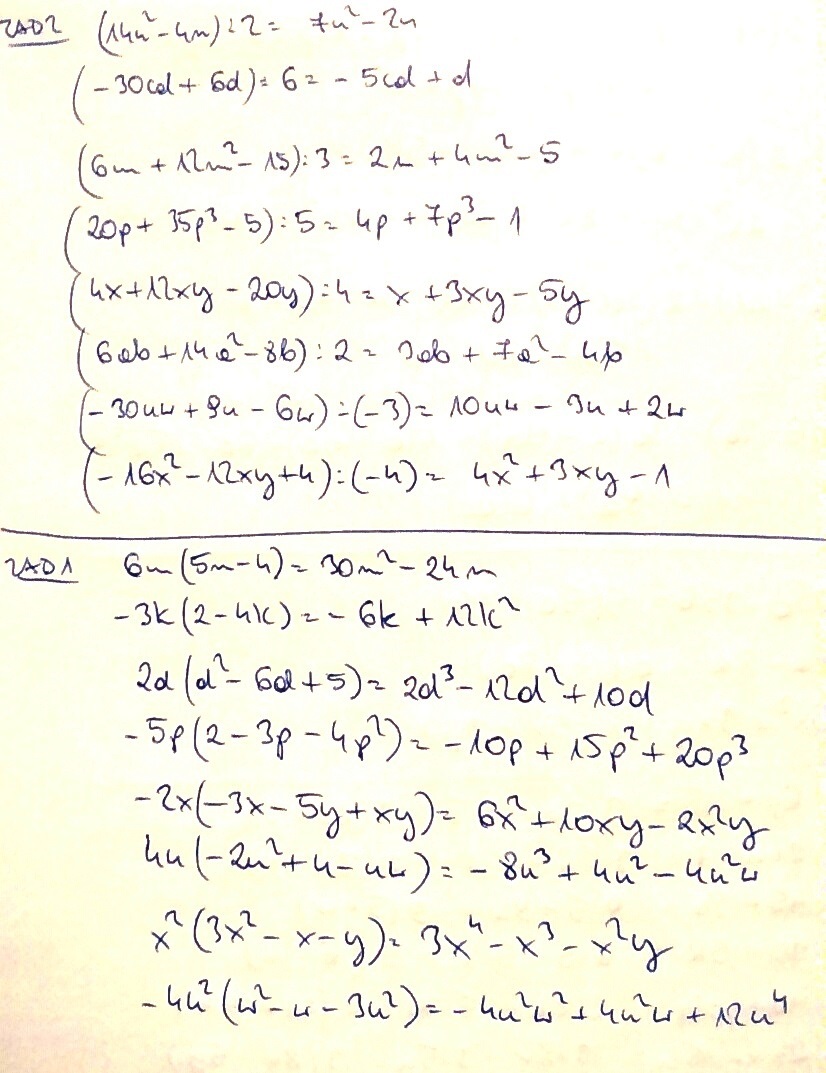 ZAD2 (14u² - 4u) : 2 = 7u² - 2u
(-30cd + 6d) : 6 = -5cd + d
(6m + 12m² - 15) : 3 = 2m + 4m² - 5
(20p + 35p³ - 5) : 5 = 4p + 7p³ - 1
(4x + 12xy - 20y) : 4 = x + 3xy - 5y
(6ab + 14a² - 8b) : 2 = 3ab + 7a² - 4b
(-30uw + 9u - 6w) : (-3) = 10uw - 3u + 2w
(-16x² - 12xy + 4) : (-4) = 4x² + 3xy - 1
ZAD1 6m(5m - 4) = 30m² - 24m
-3k(2 - 4k) = -6k + 12k²
2d(d² - 6d + 5) = 2d³ - 12d² + 10d
-5p(2 - 3p - 4p²) = -10p + 15p² + 20p³
-2x(-3x - 5y + xy) = 6x² + 10xy - 2x²y
4u(-2u² + u - uw) = -8u³ + 4u² - 4u²w
x²(3x² - x - y) = 3x⁴ - x³ - x²y
-4u²(w² - w - 3u²) = -4u²w² + 4u²w + 12u⁴